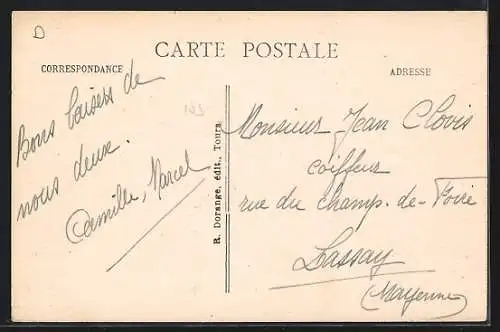 D
CARTE POSTALE
CORRESPONDANCE
ADRESSE
103
Bons baisers de
nous deux.
Camille, Marcel
R. Dorange, édit., Tours
Monsieur Jean Clovis
coiffeur
rue du champ-de-Foire
Lassay
(Mayenne)